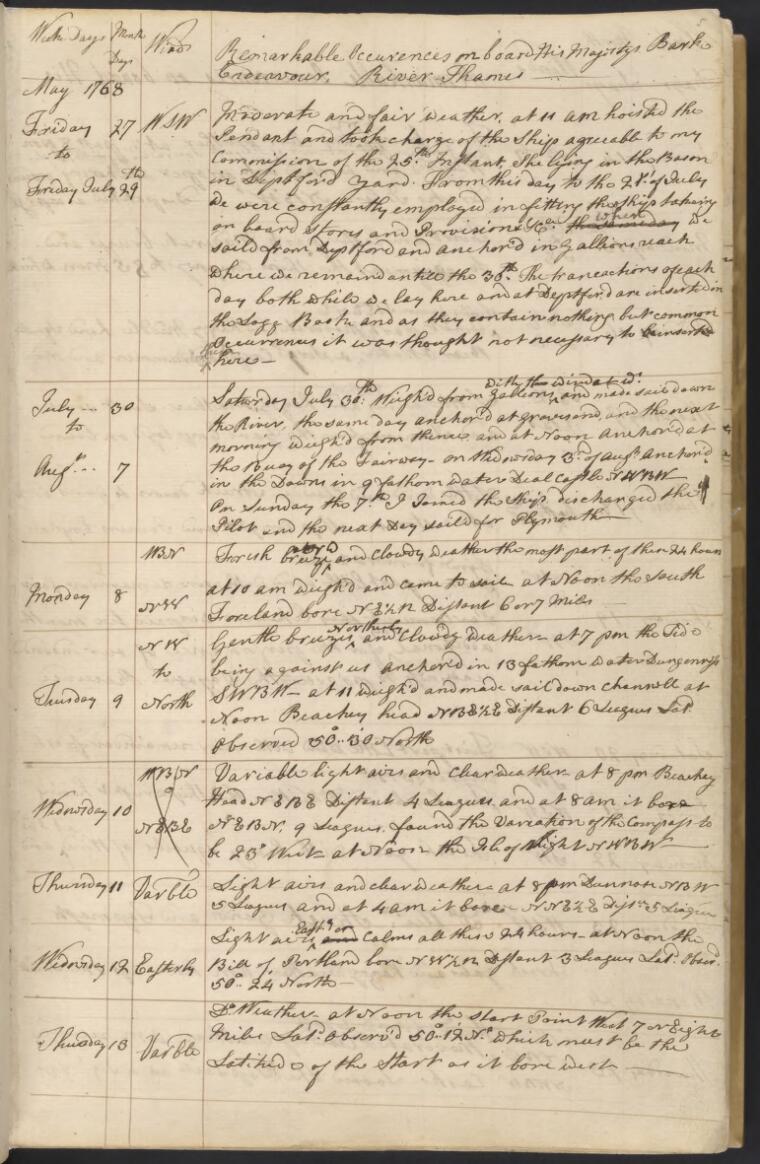 Week Days Month Days Winds Remarkable Occurences on board His Majestys Bark
Endeavour, River Thames
May 1768
Friday 27 WSW Moderate and fair weather, at 11 am hoisted the
to Pendant and took charge of the Ship agreeable to my
Commission of the 25th Instant, She lying in the Bason
Friday July 29th in Deptford Yard. From this day to the 21st of July
we were constantly employed in fitting the ship takeing
on board stores and Provisions &ca the same day when we
saild from Deptford and anchor'd in Gallions reach
where we remaind untill the 30th. The transactions of each
day both while we lay here and at Deptford are inserted in
the Logg Book and as they contain nothing but common
Occurrences it was thought not necessary to be inserted
here—
July 30 Saturday July 30th Weigh'd from Gallions, and made sail down
to the River, the same day anchor'd at gravesend, and the next
morning weigh'd from thence, and at Noon Anchor'd at
Augt 7 the Buoy of the Fairway— on Wednesday 3d of augt anchor'd
in the Downs in 9 fathom water Deal Castle NWBW
On Sunday the 7th I Joined the Ship, discharged the
Pilot and the next Day saild for Plymouth
WBN Fresh breeze and Cloudy weather the most part of these 24 hours
Monday 8 at 10 am weigh'd and came to sail at Noon the South
Foreland bore NE½N Distant 6 or 7 Miles
NW Gentle breezes Northerly and Cloudy weather at 7 pm the Tide
to being against us anchor'd in 13 fathom water Dungenness
Tuesday 9 North SWBW— at 11 weigh'd and made sail down Channell at
Noon Beachey head NBE½E Distant 6 Leagues Latd
observed 50°..30' North
WBN Variable light airs and clear weather at 8 pm Beachey
Wednesday 10 Head NEBE Distant 4 Leagues, and at 8 am it bore
NEBE NEBN, 9 Leagues, found the Variation of the Compass to
be 23° West— at Noon the Isle of Wight NWBW
Thursday 11 Varble Light airs and clear weather at 8 pm Dunnose NBW
5 Leagues and at 4 am it bore NNE½E Distt 5 Leagues
Light airs Easty or and Calms all these 24 hours— at Noon the
Wednesday 12 Easterly Bill of Portland bore NW½N Distant 3 Leagues Latd Obserd
50°..24' North—
Do Weather at Noon the Start Point West 7 or Eight
Thursday 13 Varble Miles Latd Observ'd 50°..12' No which must be the
Latitude of the Start as it bore west